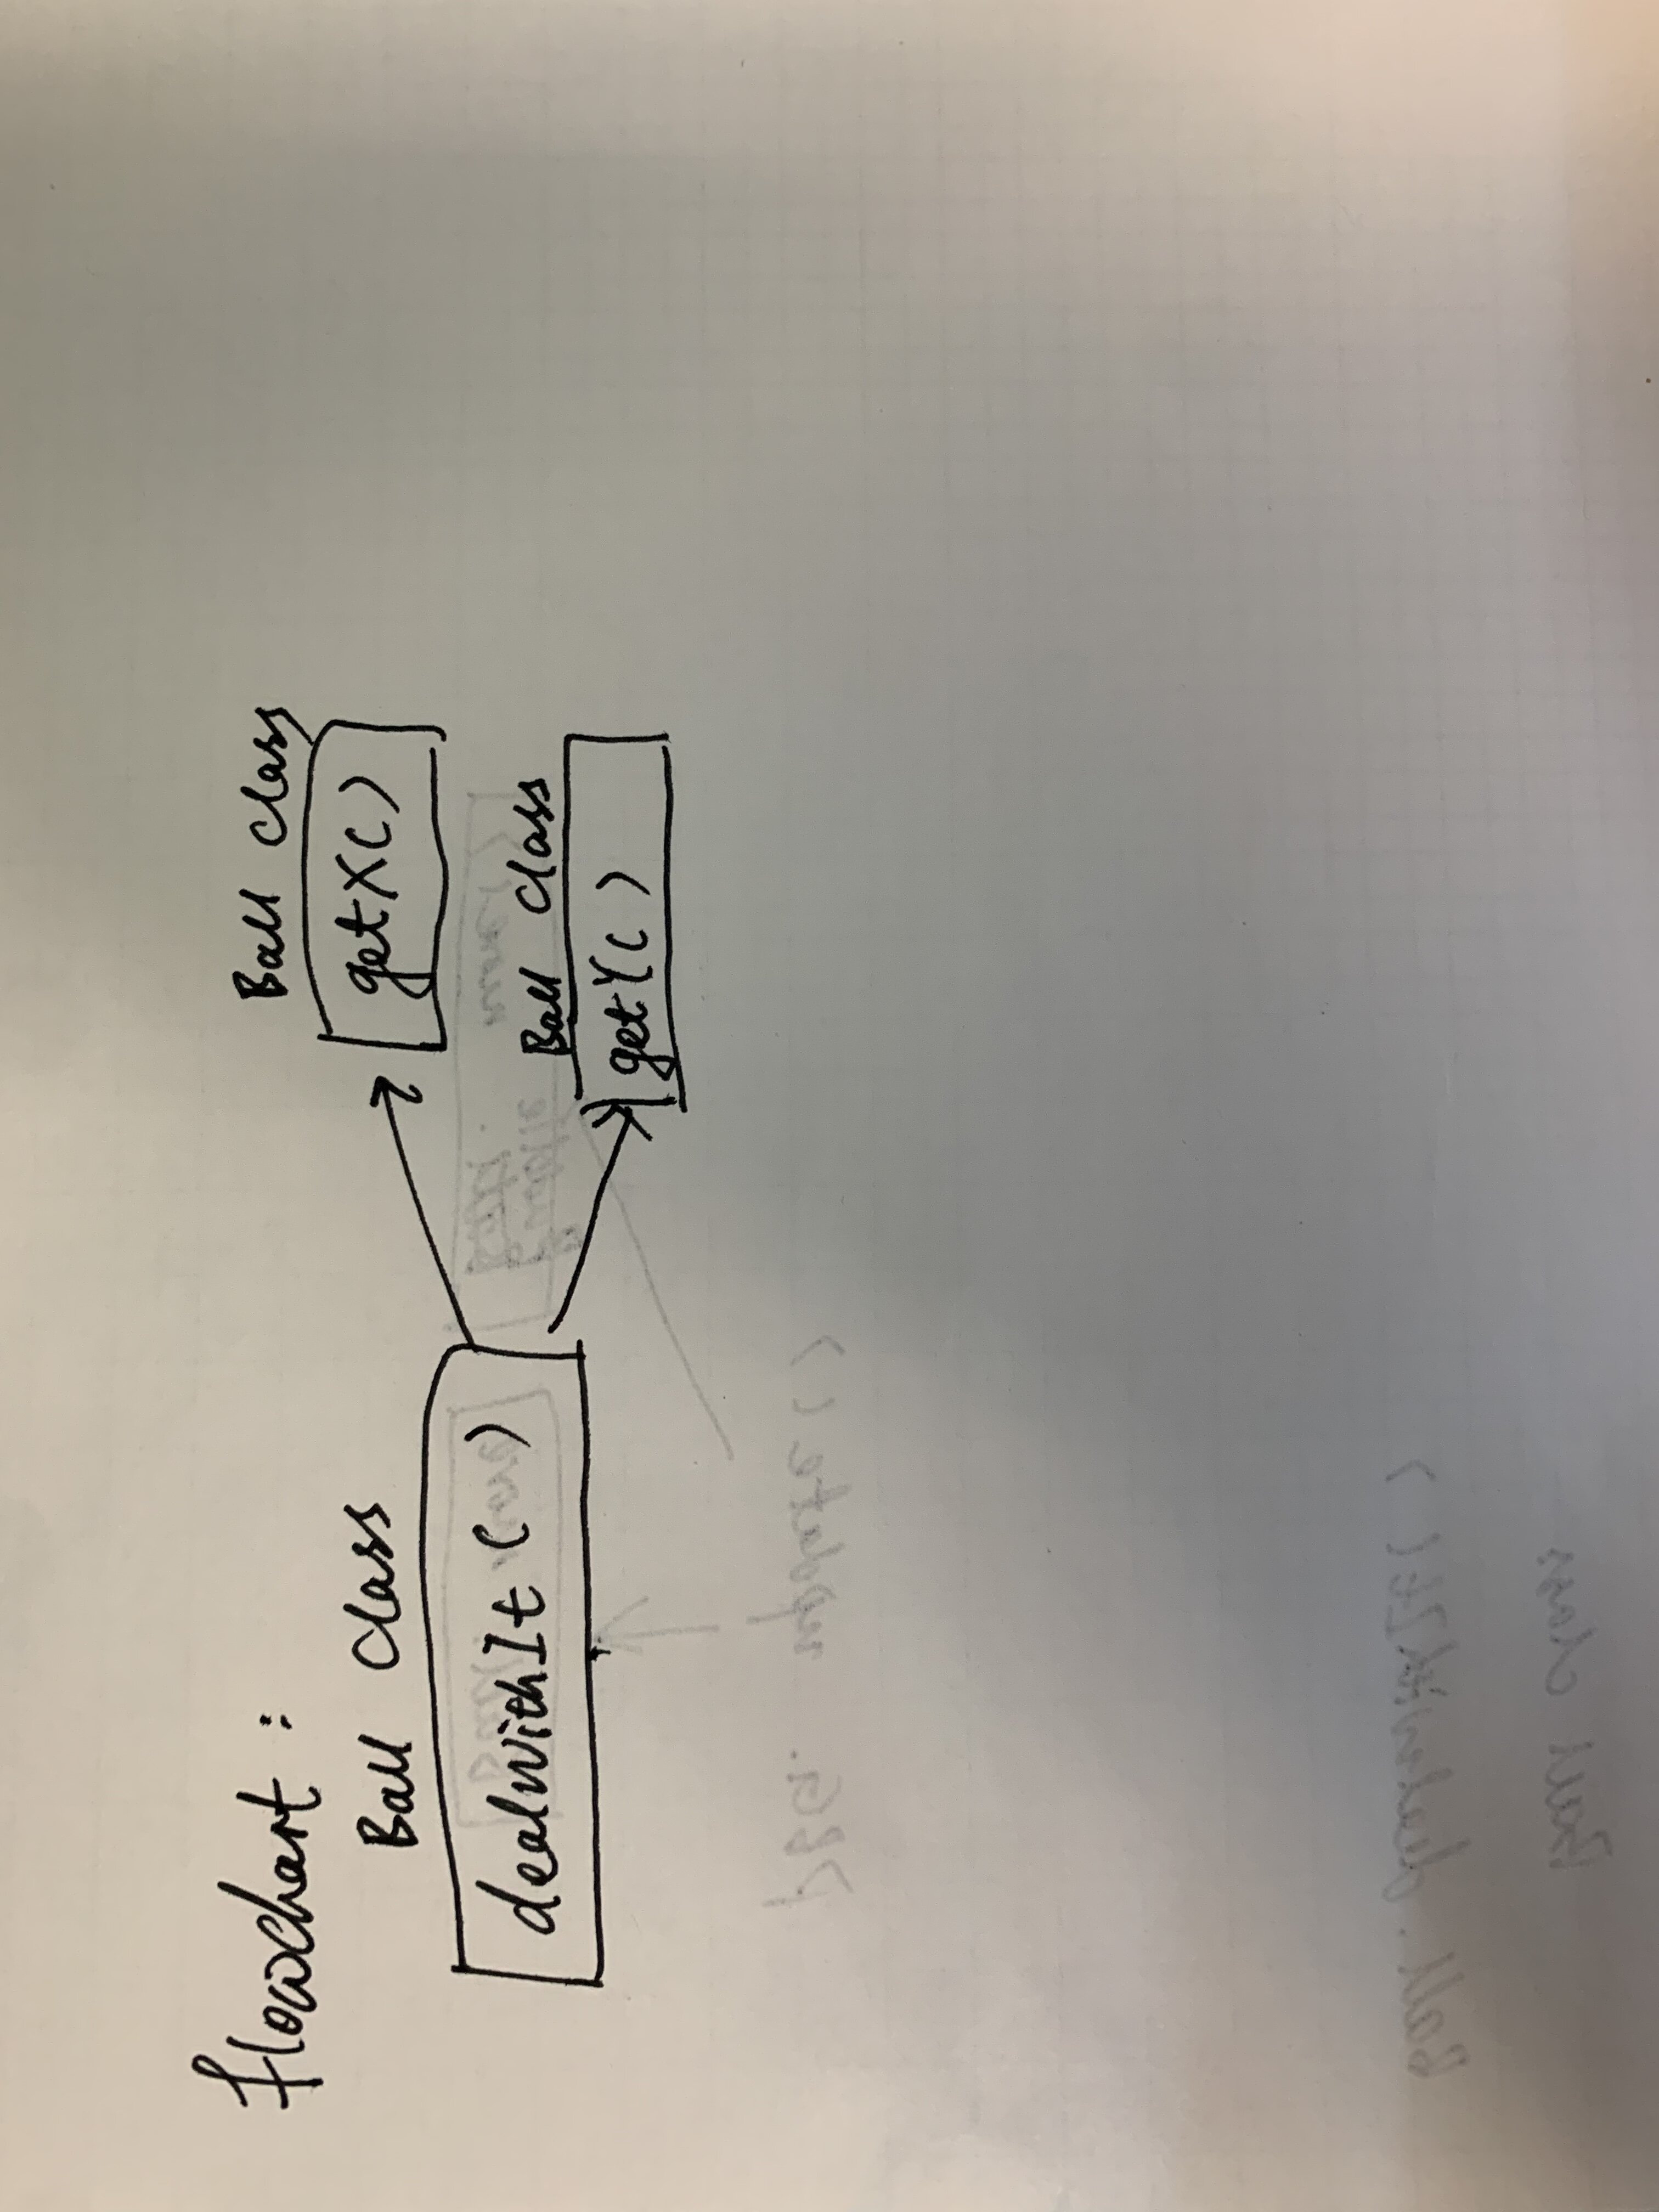 flowchart :
Ball class
dealwithIt ( )
Ball class
getX( )
Ball class
getY( )